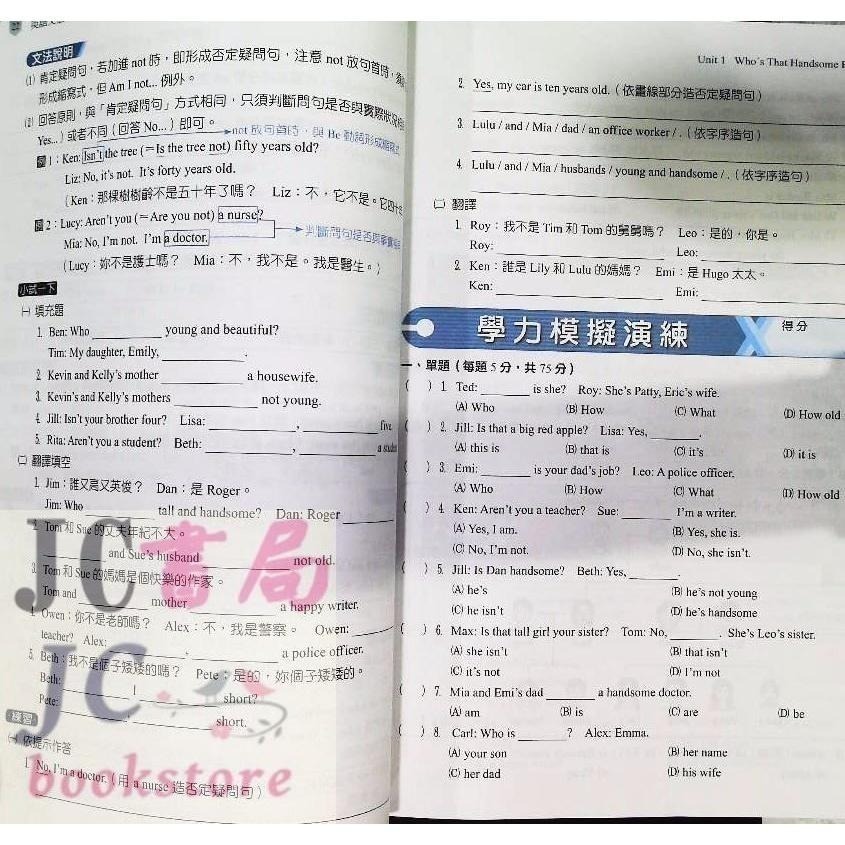 文法說明
(1) 肯定疑問句，若加進 not 時，即形成否定疑問句，注意 not 放句首時，須
形成縮寫式，但 Am I not... 例外。
(2) 回答原則，與「肯定疑問句」方式相同，只須判斷問句是否與實際狀況
Yes...）或者不同（回答 No...）即可。
not 放句首時，與 Be 動詞形成縮寫式
例 1：Ken: Isn't the tree (＝Is the tree not) fifty years old?
Liz: No, it's not. It's forty years old.
（Ken：那棵樹樹齡不是五十年了嗎？ Liz：不，它不是。它四十
例 2：Lucy: Aren't you (＝Are you not) a nurse?
Mia: No, I'm not. I'm a doctor.
判斷問句是否與事實
（Lucy：妳不是護士嗎？ Mia：不，我不是。我是醫生。）
小試一下
㈠ 填充題
1. Ben: Who ________ young and beautiful?
Tim: My daughter, Emily, ________.
2. Kevin and Kelly's mother ________ a housewife.
3. Kevin's and Kelly's mothers ________ not young.
4. Jill: Isn't your brother four? Lisa: ________, ________ five.
5. Rita: Aren't you a student? Beth: ________, ________ a student
㈡ 翻譯填空
1. Jim：誰又高又英俊？ Dan：是 Roger。
Jim: Who ________ tall and handsome? Dan: Roger ________
2. Tom 和 Sue 的丈夫年紀不大。
________ and Sue's husband ________ not old.
3. Tom 和 Sue 的媽媽是個快樂的作家。
Tom and ________ mother ________ a happy writer.
4. Owen：你不是老師嗎？ Alex：不，我是警察。 Owen: ________
teacher? Alex: ________, ________ a police officer.
5. Beth：我不是個子矮矮的嗎？ Pete：是的，妳個子矮矮的。
Beth: ________ I ________ short?
Pete: ________, ________ short.
練習
㈠ 依提示作答
1. No, I'm a doctor.（用 a nurse 造否定疑問句）
JC書局
JC
bookstore
Unit 1 Who's That Handsome
2. Yes, my car is ten years old.（依畫線部分造否定疑問句）
3. Lulu / and / Mia / dad / an office worker / .（依字序造句）
4. Lulu / and / Mia / husbands / young and handsome / .（依字序造句）
㈡ 翻譯
1. Roy：我不是 Tim 和 Tom 的舅舅嗎？ Leo：是的，你是。
Roy: ________ Leo: ________
2. Ken：誰是 Lily 和 Lulu 的媽媽？ Emi：是 Hugo 太太。
Ken: ________ Emi: ________
學力模擬演練
得分
一、單題（每題 5 分，共 75 分）
( ) 1. Ted: ________ is she? Roy: She's Patty, Eric's wife.
(A) Who (B) How (C) What (D) How old
( ) 2. Jill: Is that a big red apple? Lisa: Yes, ________.
(A) this is (B) that is (C) it's (D) it is
( ) 3. Emi: ________ is your dad's job? Leo: A police officer.
(A) Who (B) How (C) What (D) How old
( ) 4. Ken: Aren't you a teacher? Sue: ________ I'm a writer.
(A) Yes, I am. (B) Yes, she is.
(C) No, I'm not. (D) No, she isn't.
( ) 5. Jill: Is Dan handsome? Beth: Yes, ________.
(A) he's (B) he's not young
(C) he isn't (D) he's handsome
( ) 6. Max: Is that tall girl your sister? Tom: No, ________. She's Leo's sister.
(A) she isn't (B) that isn't
(C) it's not (D) I'm not
( ) 7. Mia and Emi's dad ________ a handsome doctor.
(A) am (B) is (C) are (D) be
( ) 8. Carl: Who is ________? Alex: Emma.
(A) your son (B) her name
(C) her dad (D) his wife